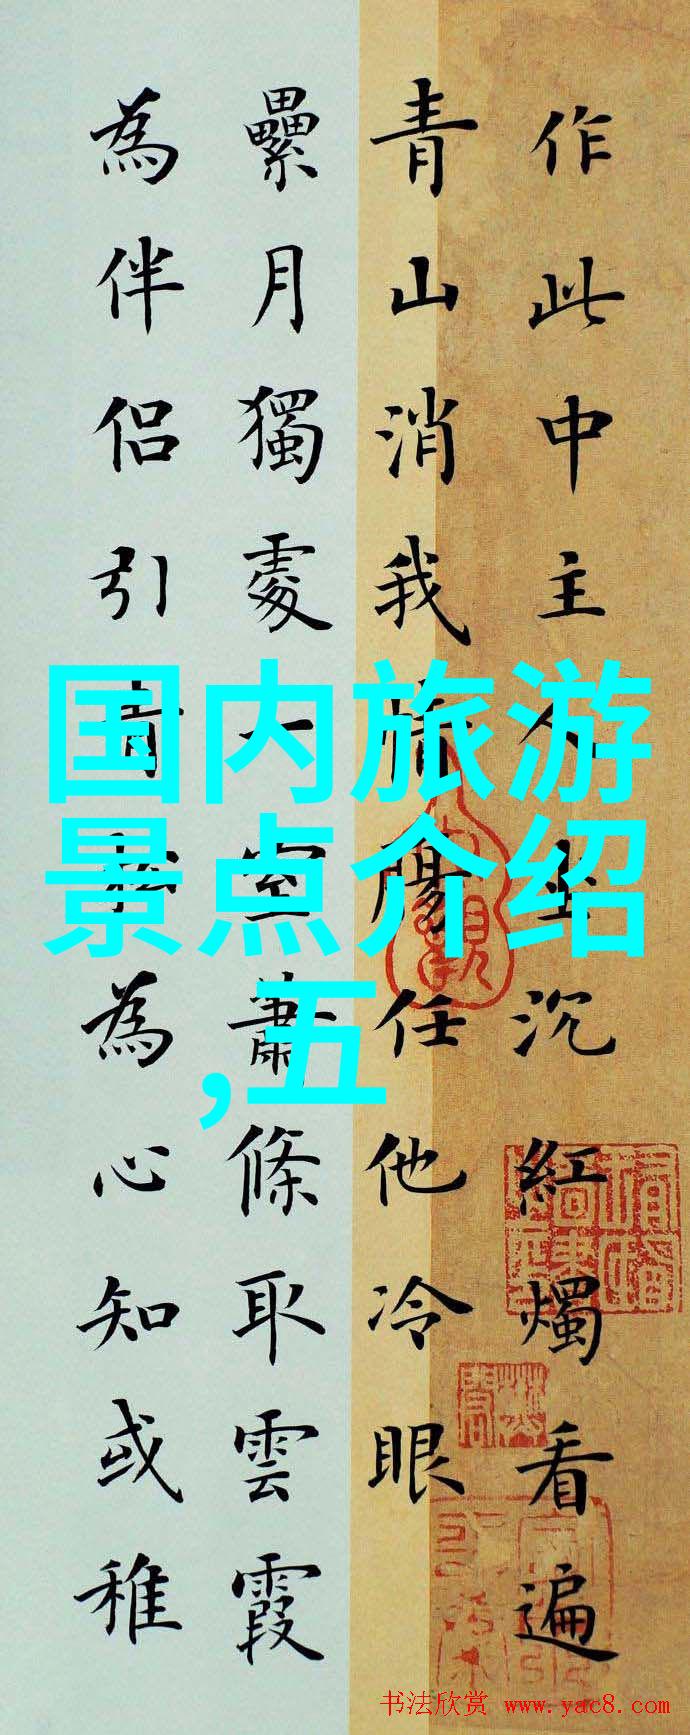 作此中主人坐沉紅燭看遍
青山消我情腸任他冷眼
纍月獨處一室蕭條取雲霞
為伴侶引青松為心知或稚
国内旅游
景点介绍
,五
书法欣赏 www.yac8.com